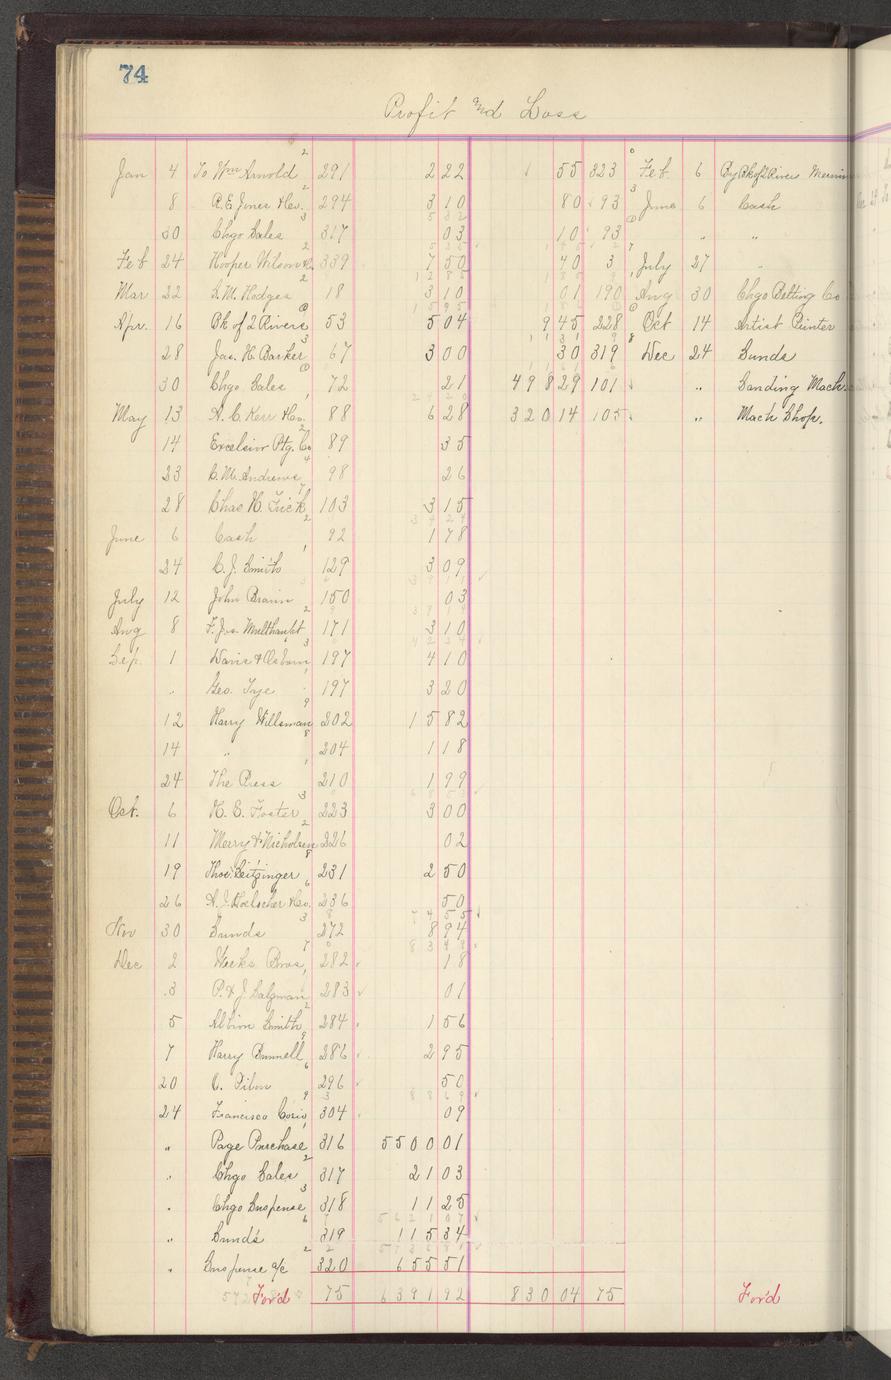 74
Profit and Loss
Jan 4 To Wm Arnold 291 2 22 55 323 Feb 6 By Bk of 2 Rivers
8 R. E. Jones & Co. 294 3 10 80 93 June 6 Cash
30 Chgo Sales 317 03 10 93 " "
Feb 24 Hooper Wilson & 339 7 50 40 3 July 27 "
Mar 22 S. M. Hodges 18 3 10 01 190 Aug 30 Chgo Belting Co
Apr. 16 Bk of 2 Rivers 53 5 04 9 45 228 Oct 14 Artist Printer
28 Jas. H. Barker 67 3 00 30 319 Dec 24 Sunds
30 Chgo Sales 72 21 498 29 101 " Sanding Mach.
May 13 A. C. Kerr & Co. 88 6 28 320 14 105 " Mach Shop.
14 Excelsior Ptg. Co 89 35
23 C. M. Andrews 98 26
28 Chas H. Frick 103 3 15
June 6 Cash 92 1 78
24 C. J. Smith 129 3 09
July 12 John Braun 150 03
Aug 8 F. Jos. Multhaupt 171 3 10
Sep. 1 Davis & Osborn 197 4 10
" Geo. Tye 197 3 20
12 Harry Willsman 202 15 82
14 " 204 1 18
24 The Press 210 1 99
Oct. 6 N. E. Foster 223 3 00
11 Merry & Nicholson 226 02
19 Thos. Leitzinger 231 2 50
26 A. J. Hoelscher & Co. 236 50
Nov 30 Sunds 272 8 94
Dec 2 Weeks Bros, 282 18
3 P. & J. Salzman 283 01
5 Albion Smith 284 1 56
7 Harry Bunnell 286 2 95
20 296 50
24 Francisco 304 09
" Page Purchase 316 5500 01
" Chgo Sales 317 21 03
" Chgo Suspense 318 11 25
" Sunds 319 115 34
" Suspense a/c 320 655 51
For'd 75 6391 92 830 04 75 For'd